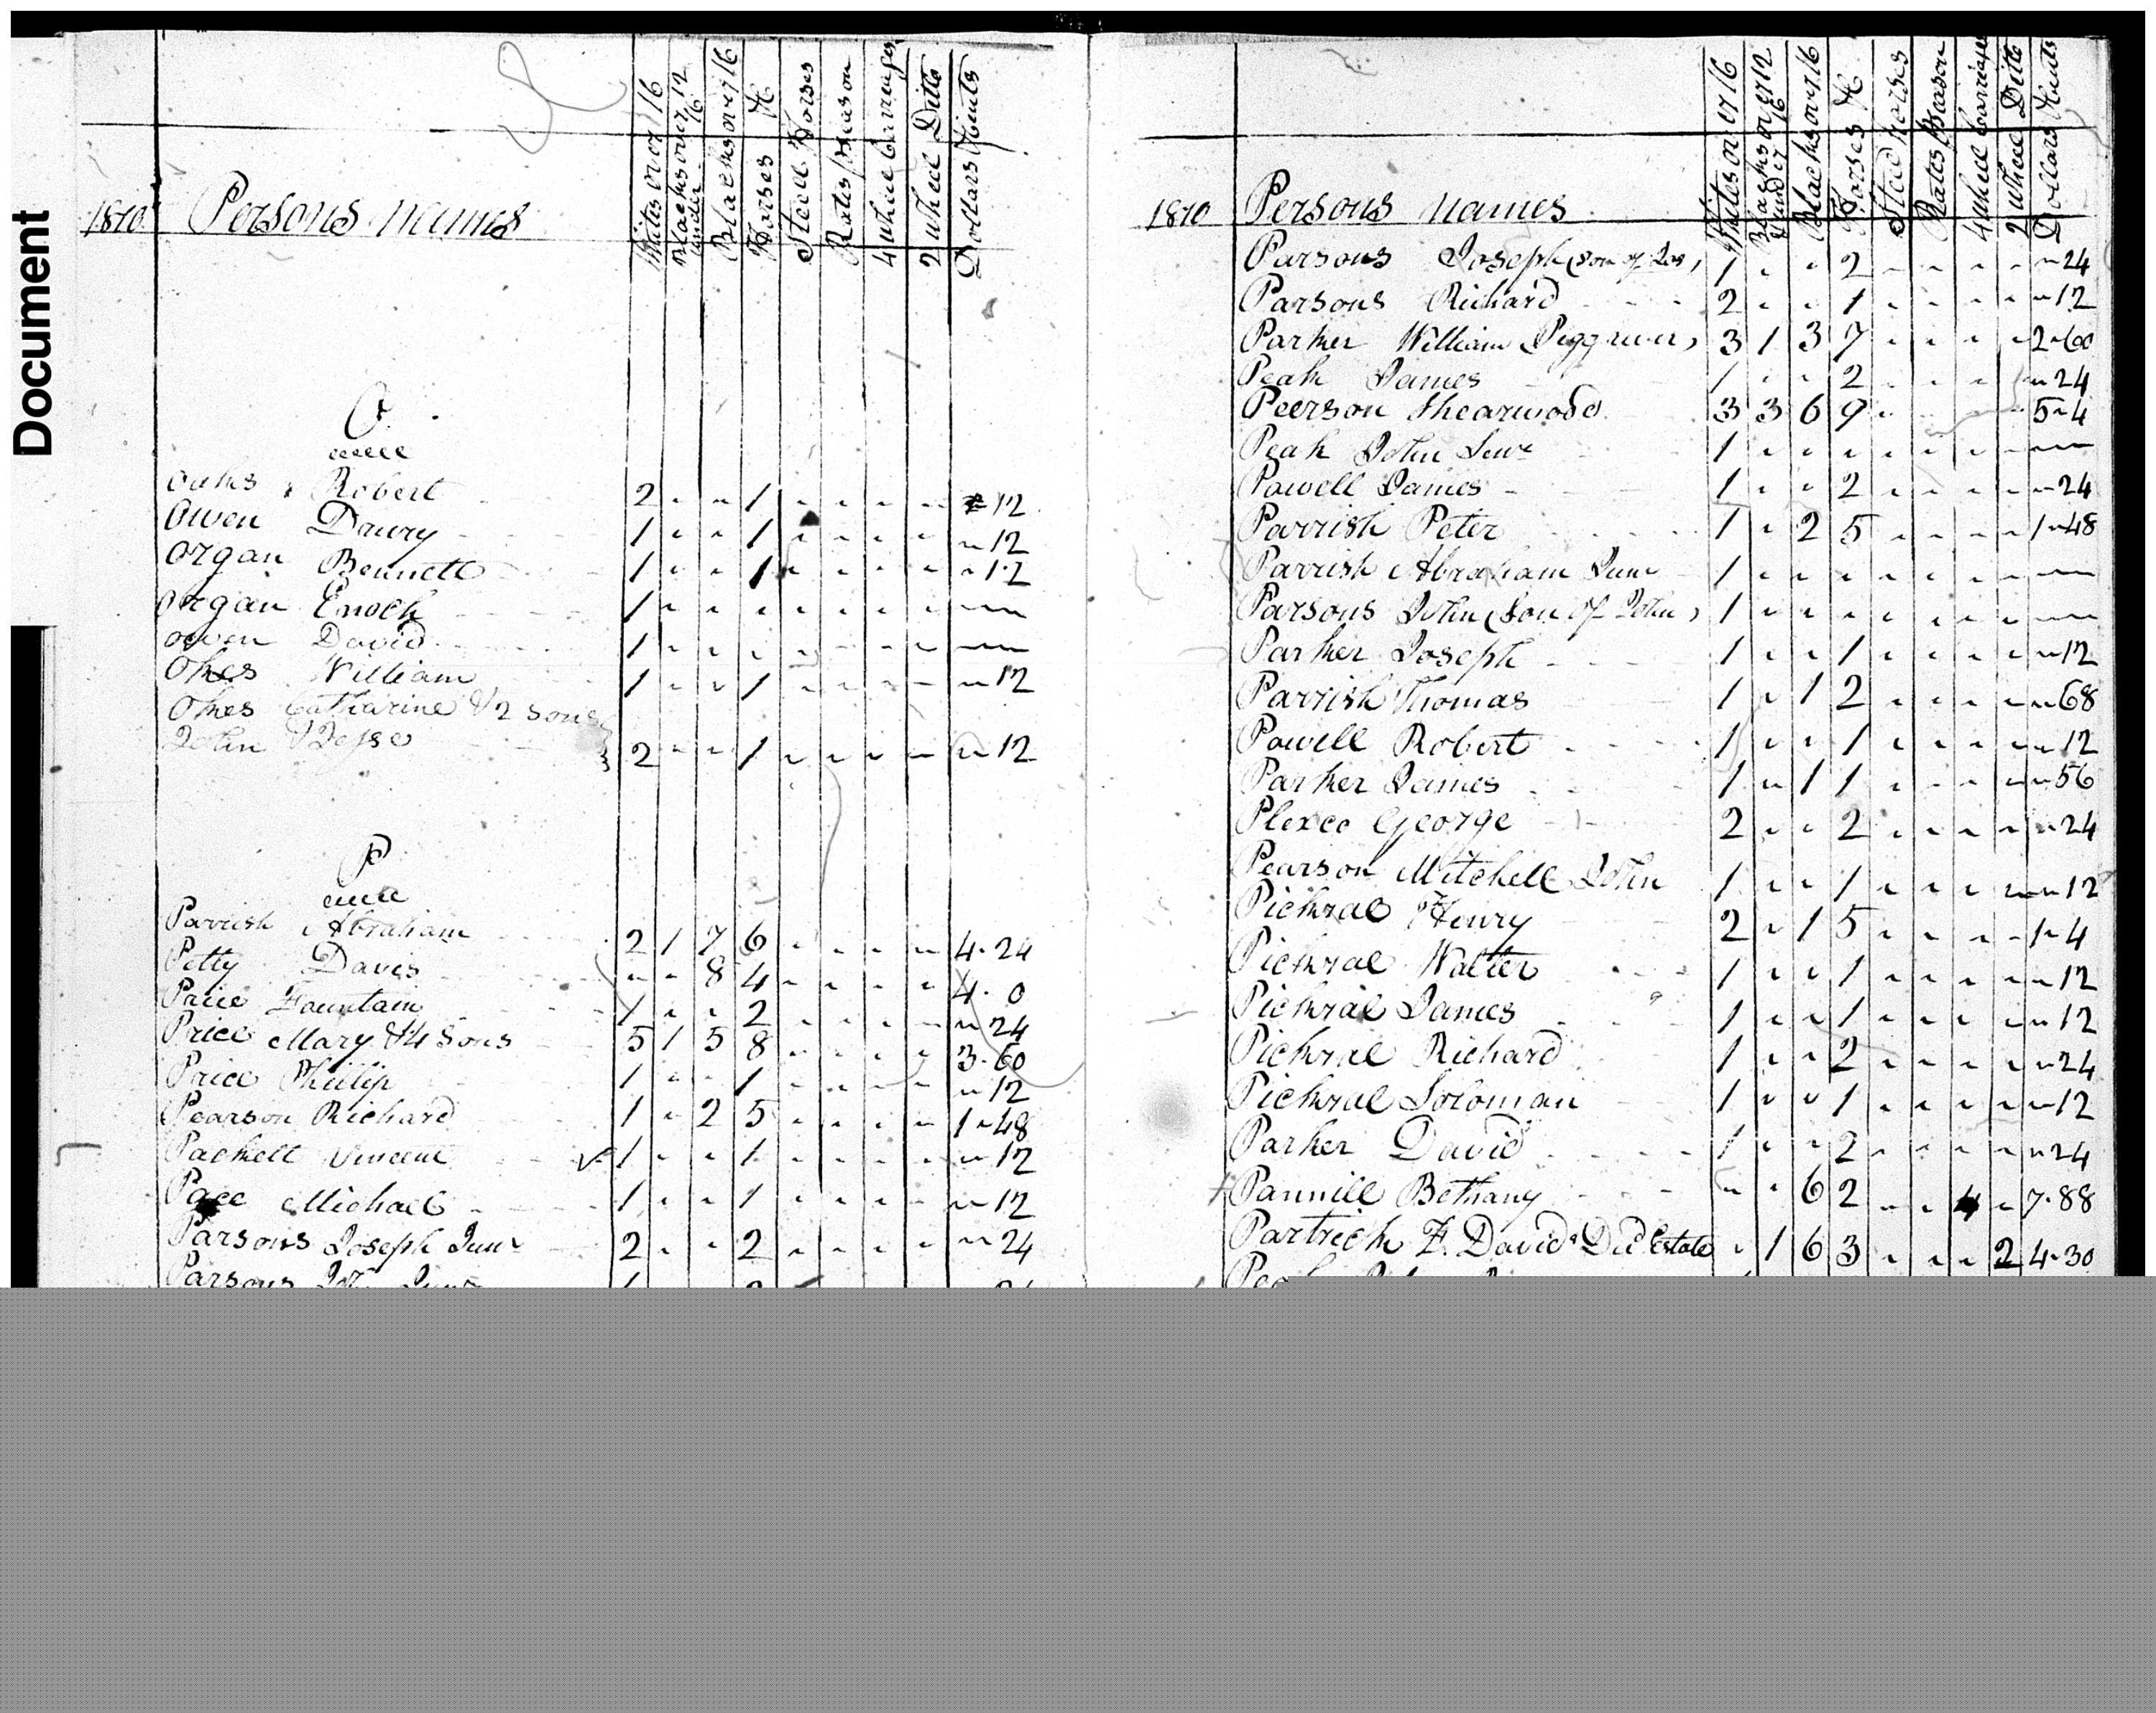 Document
1810 Persons names Whites over 16 Blacks over 12 & under 16 Blacks over 16 Horses &c Steed Horses Rates p season 4 wheel Carriages 2 wheel Ditto Dollars & Cents
O
Oakes Robert 2 - - 1 - - - - - 12
Owen Daury 1 - - 1 - - - - - 12
Organ Bennett 1 - - 1 - - - - - 12
Organ Enoch 1 - - - - - - - -
Owen David 1 - - - - - - - -
Okes William 1 - - 1 - - - - - 12
Okes Catharine & 2 sons
John & Jesse 2 - - 1 - - - - - 12
P
Parrish Abraham 2 1 7 6 - - - - 4.24
Petty Davis - - 8 4 - - - - 4.0
Pace Fountain 1 - - 2 - - - - - 24
Price Mary & 4 Sons 5 1 5 8 - - - - 3.60
Price Philip 1 - - 1 - - - - - 12
Pearson Richard 1 - 2 5 - - - - 1-48
Packett Vincent 1 - - 1 - - - - - 12
Pace Michael 1 - - 1 - - - - - 12
Parsons Joseph Junr 2 - - 2 - - - - - 24
Parsons
1810 Persons names Whites over 16 Blacks over 12 & under 16 Blacks over 16 Horses &c Steed Horses Rates p season 4 wheel Carriages 2 wheel Ditto Dollars & Cents
Parsons Joseph (son of Jos) 1 - - 2 - - - - - 24
Parsons Richard 2 - - 1 - - - - - 12
Parker William Pigg river) 3 1 3 7 - - - - 2-60
Peak James 1 - - 2 - - - - - 24
Peerson Shearwood 3 3 6 9 - - - - 5-4
Peak John Senr 1 - - - - - - - -
Powell James 1 - - 2 - - - - - 24
Parrish Peter 1 - 2 5 - - - - 1-48
Parrish Abraham Junr 1 - - - - - - - -
Parsons John (Son of John) 1 - - - - - - - -
Parker Joseph 1 - - 1 - - - - - 12
Parrish Thomas 1 - 1 2 - - - - - 68
Powell Robert 1 - - 1 - - - - - 12
Parker James 1 - 1 1 - - - - - 56
Plexco George 2 - - 2 - - - - - 24
Pearson Mitchell John 1 - - 1 - - - - - 12
Pickral Henry 2 - 1 5 - - - - 1-4
Pickral Walter 1 - - 1 - - - - - 12
Pickral James 1 - - 1 - - - - - 12
Pickral Richard 1 - - 2 - - - - - 24
Pickral Soloman 1 - - 1 - - - - - 12
Parker David 1 - - 2 - - - - - 24
Pannill Bethany - - 6 2 - - 4 - 7.88
Partrick F. David Dcd Estate - 1 6 3 - - - 2 4-30